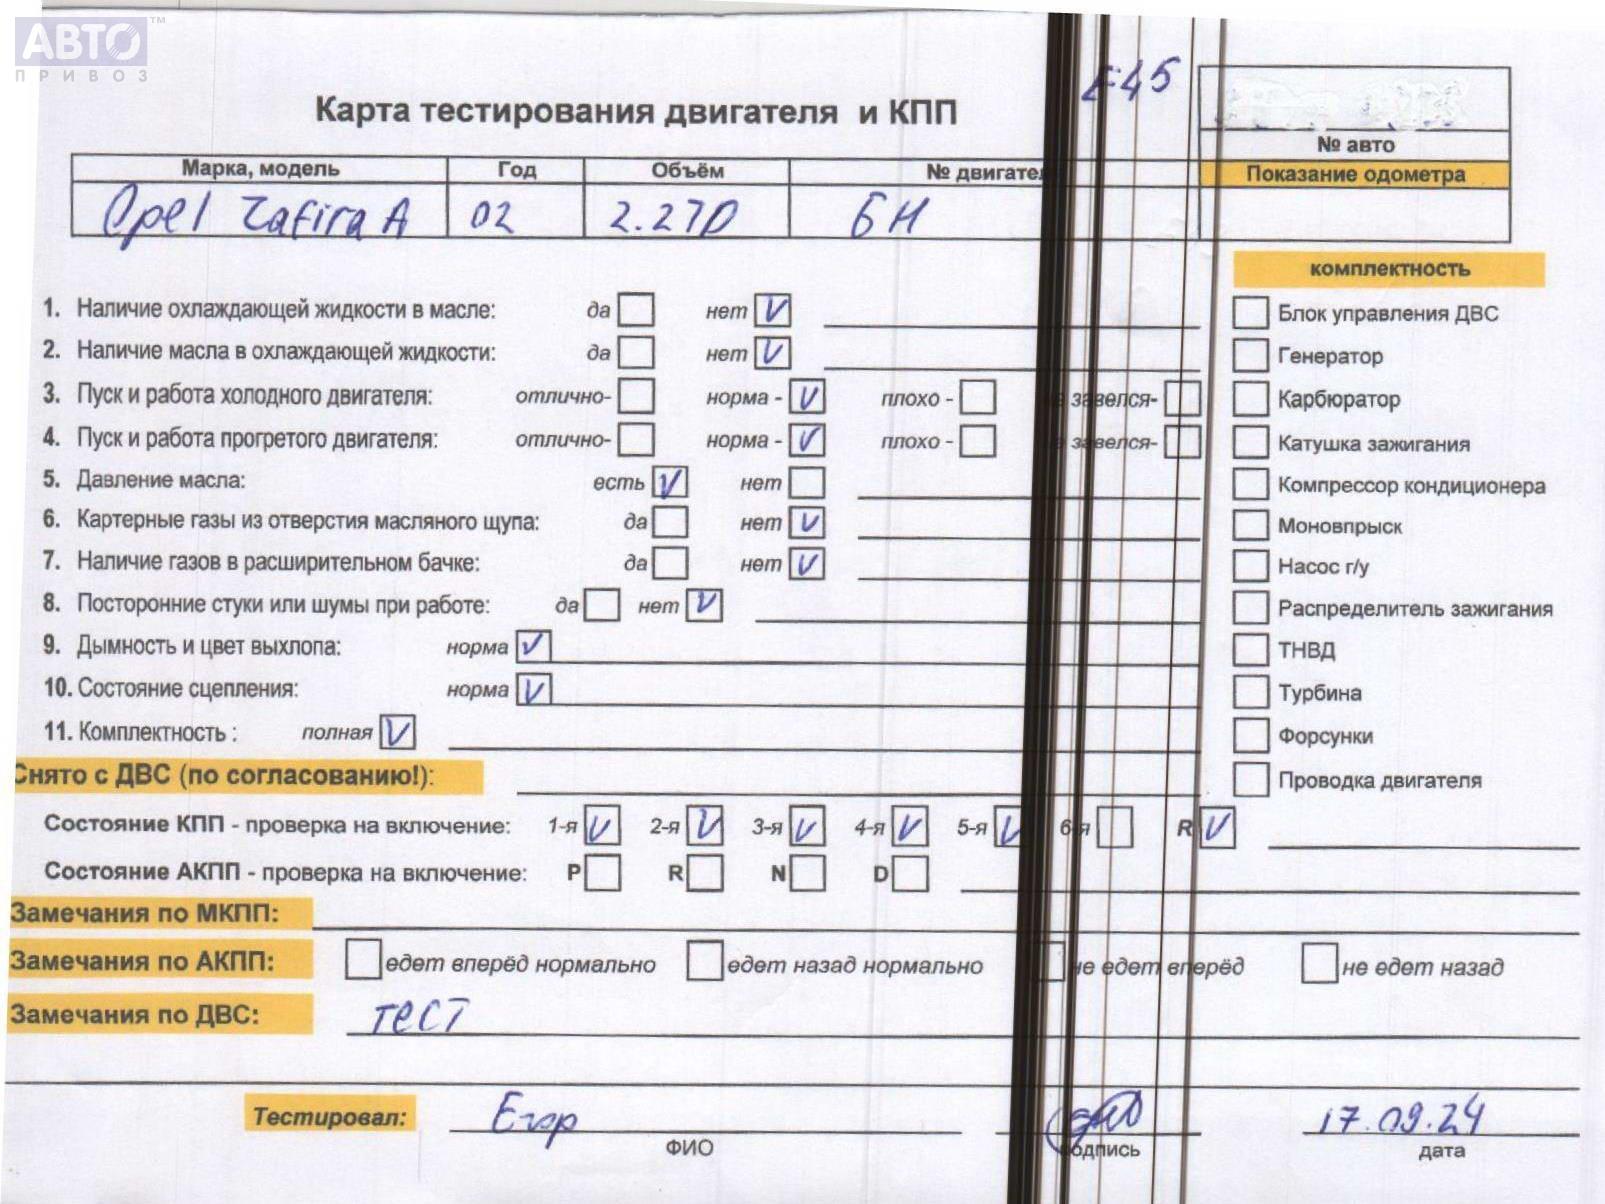 АВТО™
ПРИВОЗ
E-45
Карта тестирования двигателя и КПП
№ авто
Марка, модель Год Объём № двигател Показание одометра
Opel Zafira A 02 2.2TD БН
комплектность
1. Наличие охлаждающей жидкости в масле: да нет V Блок управления ДВС
2. Наличие масла в охлаждающей жидкости: да нет V Генератор
3. Пуск и работа холодного двигателя: отлично- норма - V плохо - завелся- Карбюратор
4. Пуск и работа прогретого двигателя: отлично- норма - V плохо - завелся- Катушка зажигания
5. Давление масла: есть V нет Компрессор кондиционера
6. Картерные газы из отверстия масляного щупа: да нет V Моновпрыск
7. Наличие газов в расширительном бачке: да нет V Насос г/у
8. Посторонние стуки или шумы при работе: да нет V Распределитель зажигания
9. Дымность и цвет выхлопа: норма V ТНВД
10. Состояние сцепления: норма V Турбина
11. Комплектность : полная V Форсунки
Снято с ДВС (по согласованию!): Проводка двигателя
Состояние КПП - проверка на включение: 1-я V 2-я V 3-я V 4-я V 5-я V 6-я R V
Состояние АКПП - проверка на включение: P R N D
Замечания по МКПП:
Замечания по АКПП: едет вперёд нормально едет назад нормально не едет вперёд не едет назад
Замечания по ДВС: тест
Тестировал: Егор 17.09.24
ФИО подпись дата